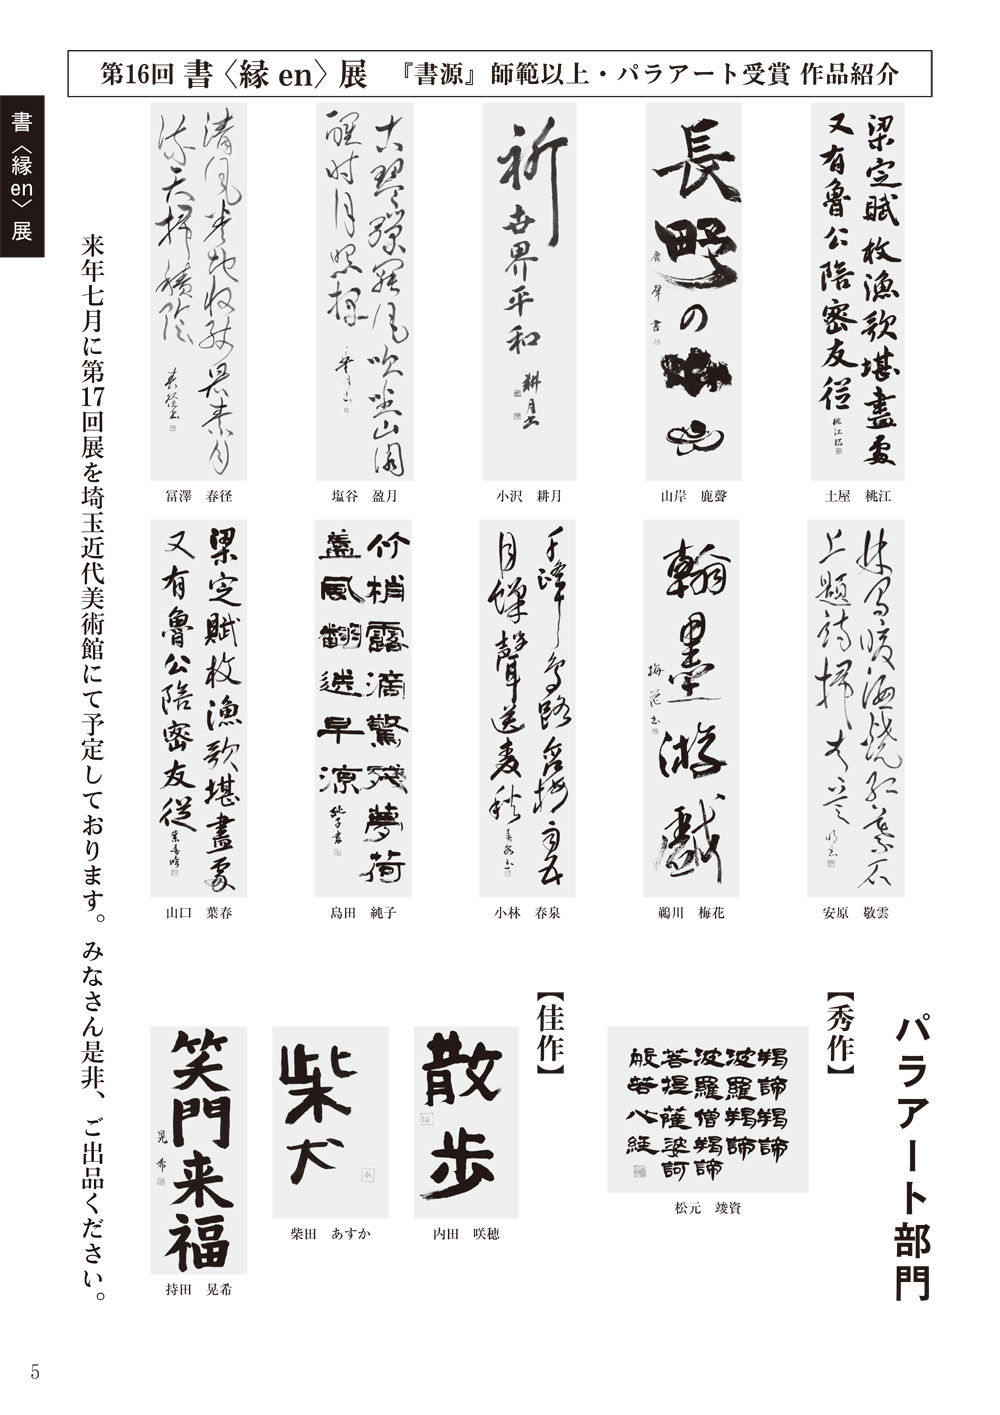 第16回 書〈縁 en〉展 『書源』師範以上・パラアート受賞 作品紹介
書〈縁en〉展
梁定賦枚漁歌堪畫處
又有魯公陪密友從
桃江臨
土屋 桃江
長野の
鹿聲書
山岸 鹿聲
祈
世界平和
耕月书
小沢 耕月
古琴弾罷風吹座山閣
醒時月照杯
塩谷 盈月
清風
天掃積陰
冨澤 春径
安原 敬雲
翰墨游戯
梅花书
鵜川 梅花
千峰鳥路含梅雨五
月蝉聲送麦秋
春泉书
小林 春泉
竹梢露滴驚残夢荷
蓋風翻送早涼
純子書
島田 純子
梁定賦枚漁歌堪畫處
又有魯公陪密友從
葉春臨
山口 葉春
パラアート部門
【秀作】
羯諦羯諦
波羅羯諦
波羅僧羯諦
菩提薩婆訶
般若心経
松元 竣資
【佳作】
散歩
内田 咲穂
柴犬
柴田 あすか
笑門来福
晃希
持田 晃希
来年七月に第17回展を埼玉近代美術館にて予定しております。みなさん是非、ご出品ください。
5